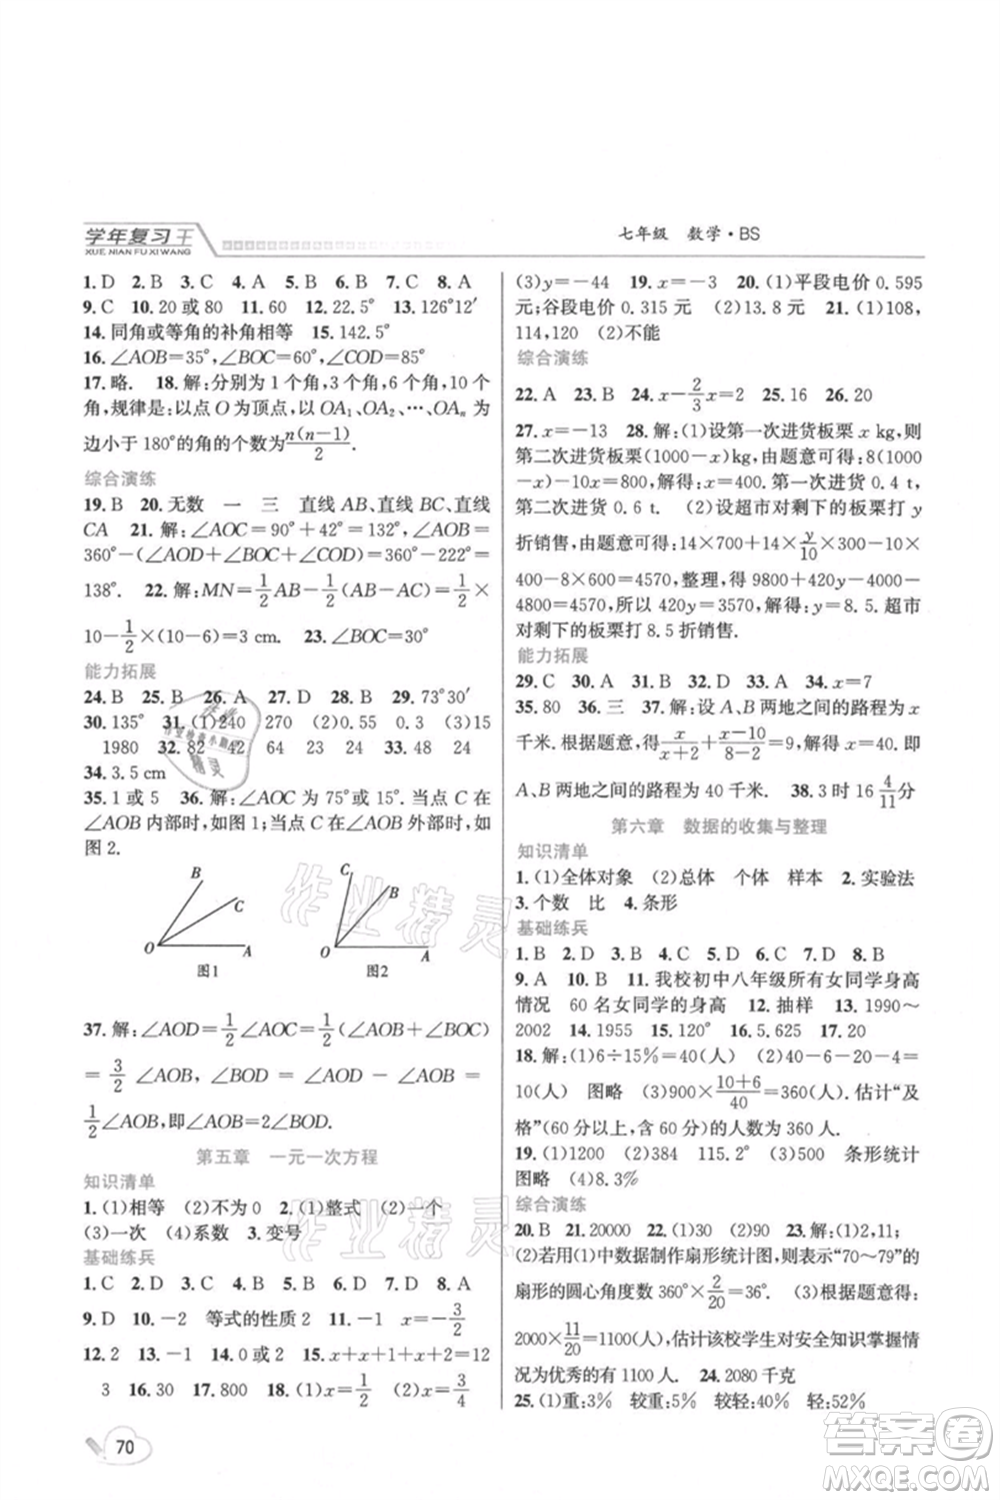 学年复习王
XUE NIAN FU XI WANG
七年级 数学·BS
1. D 2. B 3. C 4. B 5. B 6. C 7. C 8. A
9. C 10. 20 或 80 11. 60 12. 22.5° 13. 126°12′
14. 同角或等角的补角相等 15. 142.5°
16. ∠AOB=35°,∠BOC=60°,∠COD=85°
17. 略. 18. 解:分别为 1 个角,3 个角,6 个角,10 个
角,规律是:以点 O 为顶点,以 OA₁、OA₂、…、OAₙ 为
边小于 180°的角的个数为n(n−1)/2.
综合演练
19. B 20. 无数 一 三 直线 AB,直线 BC、直线
CA 21. 解:∠AOC=90°+42°=132°,∠AOB=
360°−(∠AOD+∠BOC+∠COD)=360°−222°=
138°. 22. 解:MN=1/2AB−1/2(AB−AC)=1/2×
10−1/2×(10−6)=3 cm. 23. ∠BOC=30°
能力拓展
24. B 25. B 26. A 27. A 28. B 29. 73°30′
30. 135° 31. (1)240 270 (2)55 0.3 (3)15
1980 32. 82 42 33. 55
34. 3.5 cm
35. 1 或 5 36. 解:∠AOC 为 75°或 15°;当点 C 在
∠AOB 内部时,如图 1;当点 C 在∠AOB 外部时,如
图 2.
B C O A
图1
C B O A
图2
37. 解:∠AOD=1/2∠AOC=1/2(∠AOB+∠BOC)
=3/2∠AOB,∠BOD=∠AOD−∠AOB=
1/2∠AOB,即∠AOB=2∠BOD.
第五章 一元一次方程
知识清单
1. (1)相等 (2)不为 0 2. (1)整式 (2)一个
(3)一次 (4)系数 3. 变号
基础练兵
1. C 2. D 3. C 4. B 5. B 6. C 7. D 8. A
9. D 10. −2 等式的性质 2 11. 1 x=−3/2
12. 2 13. −1 14. 0 或 2 15. x+x+1+x+2=12
3 16. 30 17. 800 18. (1)x=1 (2)x=3/4
(3)y=−44 19. x=−3 20. (1)平段电价 0.595
元;谷段电价 0.315 元 (2)13.8 元 21. (1)108,
114,120 (2)不能
综合演练
22. A 23. B 24. x−2/3x=2 25. 16 26. 20
27. x=−13 28. 解:(1)设第一次进货板栗 x kg,则
第二次进货板栗(1000−x)kg,由题意可得:(1000
−x)−10x=800,解得:x=400. 第一次进货 0.4 t,
第二次进货 0.6 t. (2)设超市对剩下的板栗打 y
折销售,由题意可得:14×700+14×y/10×(1000−
400−8×600)=4570,整理,得 9800+14y/10×
4800=4570,所以,得 420y=3570,解得:y=8.5. 超市
对剩下的板栗打 8.5 折销售.
能力拓展
29. C 30. A 31. C 32. D 33. A 34. x=7
35. 80 36. 三 37. 解:设 A、B 两地之间的路程为 x
千米.根据题意,得x/(x+2)+(x−10)/(8−2)=9,解得 x=40. 即
A、B 两地之间的路程为 40 千米. 38. 3 时 16 4/11分
第六章 数据的收集与整理
知识清单
1. (1)全体对象 (2)总体 个体 样本 2. 实验法
3. 个数 比 4. 条形
基础练兵
1. B 2. D 3. D 4. A 5. B 6. C 7. D 8. B
9. A 10. B 11. 我校初中八年级所有女同学身高
情况 60 名女同学的身高 12. 抽样 13. 1990～
2002 14. 1955 15. 120° 16. 5,625 17. 20
18. 解:(1)6÷15%=40(人) (2)40−20−6−4=
10(人) 图略 (3)900×(10+6)/40=360(人),估计“及
格”(60 分以上,含 60 分)的人数为 360 人.
19. (1)1200 (2)54 115.2° (3)500 条形统计
图略 (4)8.3%
综合演练
20. B 21. 20000 22. (1)20 (2)90 23. 解:(1)2,11;
(2)若用(1)中数据制作扇形统计图,则表示“70～79”的
扇形的圆心角度数 360°×2/20=36°. (3)根据题意得:
2000×11/20=1100(人),估计该校学生对安全知识掌握情
况为优秀的有 1100 人. 24. 2080 千克
25. (1)重:3% 较重:5% 较轻:40% 轻:52%
70
作业精灵
作业精灵
答案圈
MXQE.COM